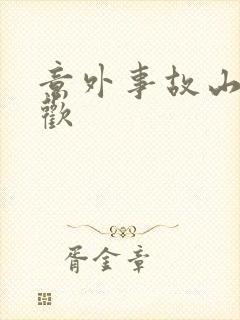 意外事故山
歡
胥金章